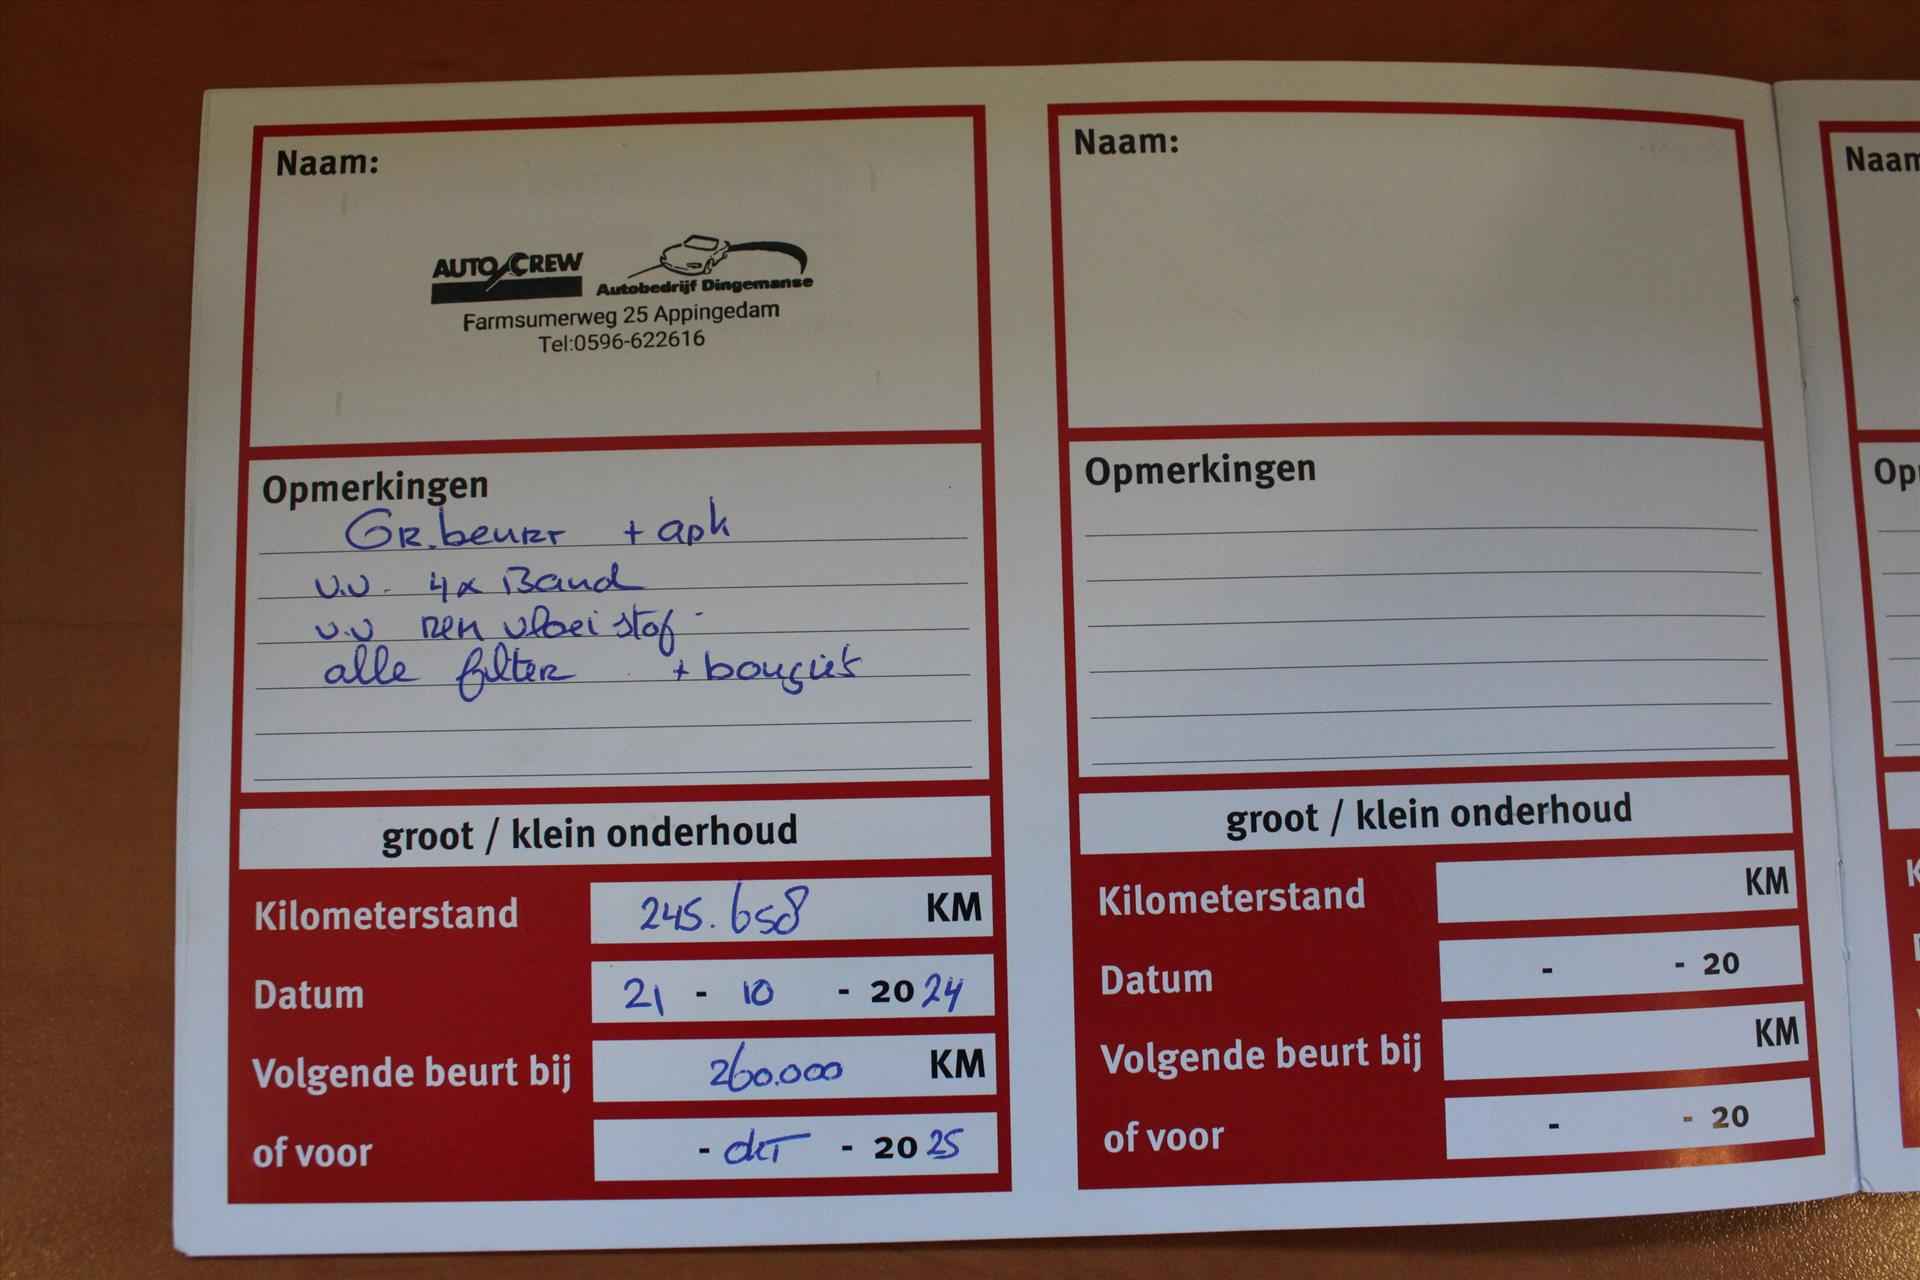 Naam:
AUTO CREW
Autobedrijf Dingemanse
Farmsumerweg 25 Appingedam
Tel:0596-622616
Opmerkingen
GR.beurt + apk
v.v. 4x Band
v.v rem vloeistof
alle filter + bougies
groot / klein onderhoud
Kilometerstand 245.658 KM
Datum 21 - 10 - 2024
Volgende beurt bij 260.000 KM
of voor - okT - 2025
Naam:
Opmerkingen
groot / klein onderhoud
Kilometerstand KM
Datum - - 20
Volgende beurt bij KM
of voor - - 20
Naam
Op
K